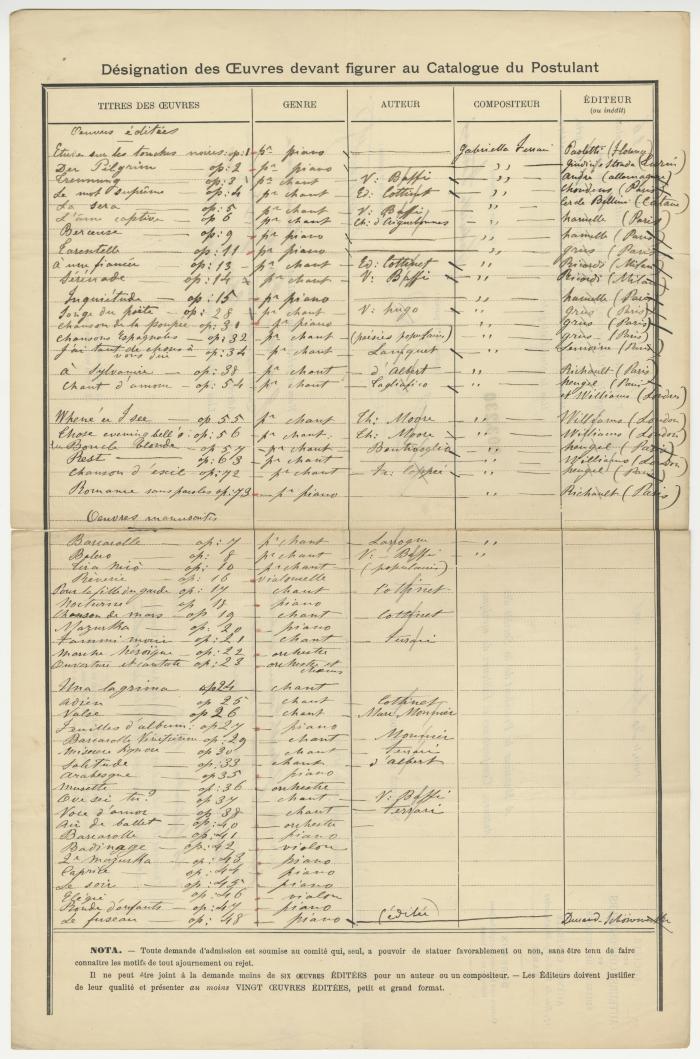 Désignation des Œuvres devant figurer au Catalogue du Postulant
TITRES DES ŒUVRES GENRE AUTEUR COMPOSITEUR ÉDITEUR (ou inédit)
Oeuvres éditées
Etudes sur les touches noires op: 1 pr piano Gabrielle Ferrari Paoletti
Der Pilgrim op: 2 pr piano ,,
op: 3 pr chant V: Baffi ,, André (allemagne)
Le mot suprême op: 4 pr chant Ed: Cottinet ,, Choudens (Paris)
La sera op: 5 pr chant V: Baffi ,,
L'âme captive op 6 pr chant ,, hamelle (Paris)
Berceuse op: 9 pr piano ,, hamelle (Paris)
Tarentelle op: 11 pr piano ,, grus (Paris)
à une fiancée op: 13 pr chant Ed: Cottinet ,, Ricordi (Milan)
Sérénade op: 14 pr chant V: Baffi ,, Ricordi (Milan)
Inquiétude op: 15 pr piano ,, hamelle (Paris)
Songe du poète op: 28 pr chant V: hugo ,, grus (Paris)
chanson de la poupée op: 31 pr piano ,, grus (Paris)
chansons Espagnoles op: 32 pr chant (poésies populaires) ,, grus (Paris)
J'ai tant de choses à vous dire op: 34 pr chant ,, Lemoine (Paris)
à Sylvanire op: 38 pr chant d'Albert ,, Richault (Paris)
Chant d'amour op: 54 pr chant Tagliafico ,, heugel (Paris
et Williams (Londres)
Whene'er I see op. 55 pr chant Th: Moore ,, Williams (London)
op: 56 pr chant Th: Moore ,, Williams (London)
La Boucle blonde op: 57 pr chant ,, heugel (Paris)
Rest op: 63 pr chant ,, Williams (London)
Chanson d'exil op: 72 pr chant Fr: Coppée ,, heugel (Paris)
Romance sans paroles op: 73 pr piano ,, Richault (Paris)
Oeuvres manuscrites
Barcarolle op: 7 pr chant ,,
Bolero op: 8 pr chant V: Baffi ,,
op: 10 pr chant (populaire)
Rêverie op: 16 violoncelle
Pour la fille du garde op: 17 chant Cottinet
Nocturne op 18 piano
Chanson de mars op 19 chant Cottinet
Mazurka op. 20 piano
op: 21 chant Ferrari
Marche héroïque op: 22 orchestre
Ouverture et cantate op: 23 orchestre et chœurs
Una lagrima op 24 chant
Adieu op 25 chant Cottinet
Valse op 26 chant Marc Monnier
Feuilles d'album op 27 piano
Barcarolle Vénitienne op. 29 chant Monnier
op 30 chant Ferrari
Solitude op: 33 chant d'Albert
Arabesque op 35 piano
Musette op: 36 orchestre
Ove sei tu? op 37 chant V: Baffi
Voce d'amor op: 38 chant Ferrari
Air de ballet op: 40 orchestre
Barcarolle op: 41 piano
Badinage op: 42 violon
2e mazurka op: 43 piano
Caprice op: 44 piano
Le soir op: 45 piano
Elégie op: 46 violon
Ronde d'enfants op: 47 piano
Le fuseau op: 48 piano (éditée) Durand
NOTA. — Toute demande d'admission est soumise au comité qui, seul, a pouvoir de statuer favorablement ou non, sans être tenu de faire
connaître les motifs de tout ajournement ou rejet.
Il ne peut être joint à la demande moins de SIX ŒUVRES ÉDITÉES pour un auteur ou un compositeur. — Les Éditeurs doivent justifier
de leur qualité et présenter au moins VINGT ŒUVRES ÉDITÉES, petit et grand format.